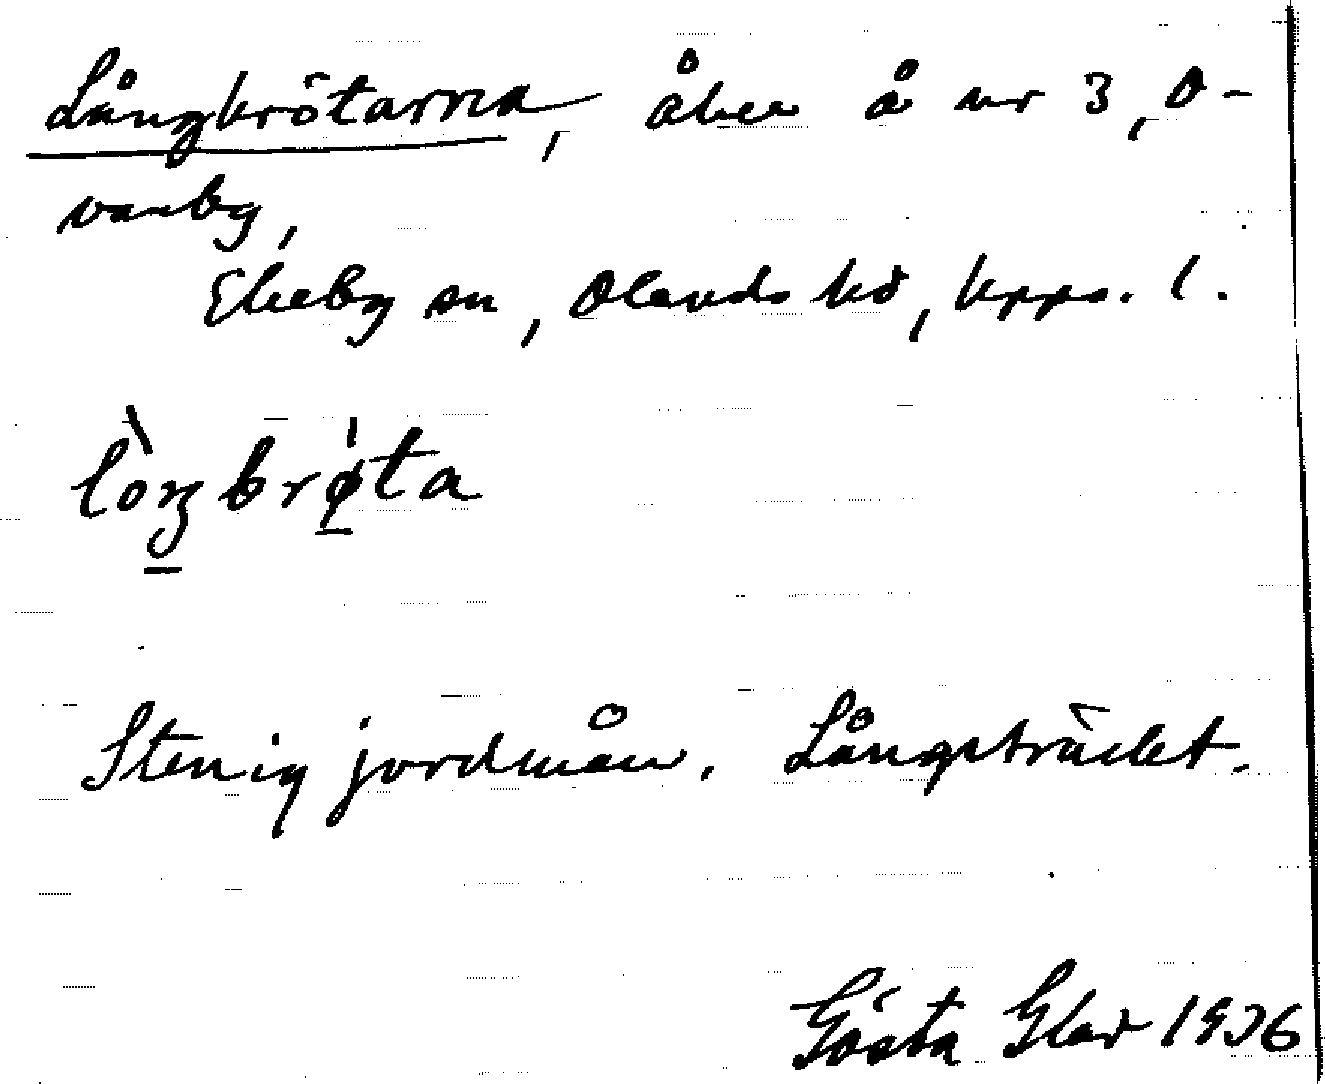 Långbrötarna, åker å nr 3, O-
vanby,
Ekeby sn, Olands hd, Upps. l.
lòŋbrǿta
Stenig jordmån. Långsträckt.
Gösta Glad 1936